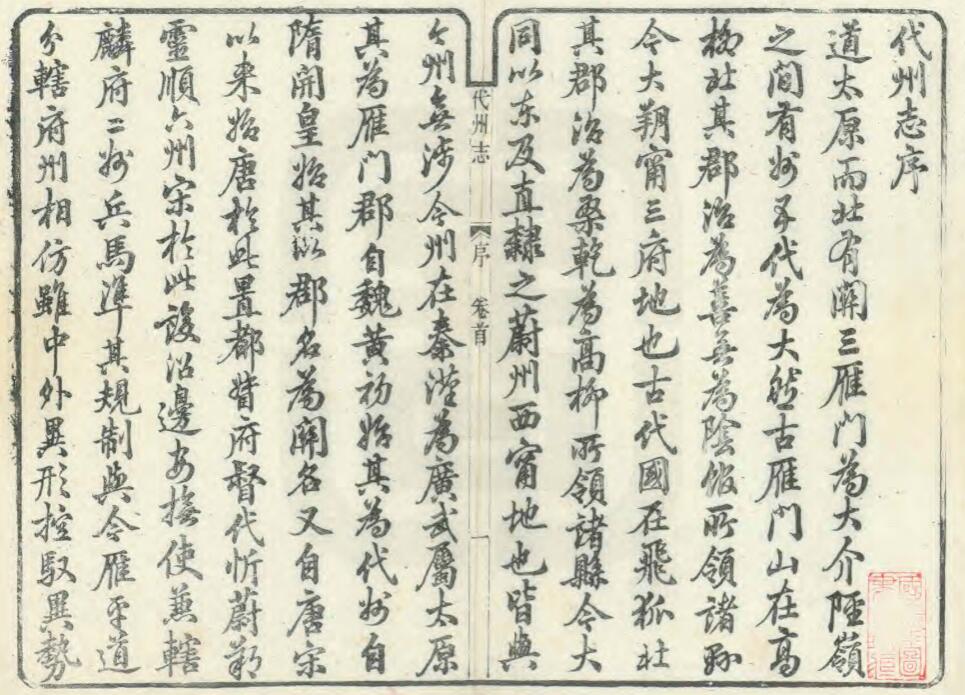 代州志序
道太原而北有關三雁門為大介陘嶺
之間有州五代為大然古雁門山在高
柳北其郡治為善無為陰館所領諸縣
今大朔甯三府地也古代國在飛狐北
其郡治為桑乾為高柳所領諸縣今大
同以東及直隸之蔚州西甯地也皆與
今州無涉今州在秦漢為廣武屬太原
代州志
序
卷首
其為雁門郡自魏黃初始其為代州自
隋開皇始其以郡名為關名又自唐宋
以來始唐於此置都督府督代忻蔚朔
靈順六州宋於此設沿邊安撫使兼轄
麟府二州兵馬準其規制與今雁平道
分轄府州相仿雖中外異形控馭異勢